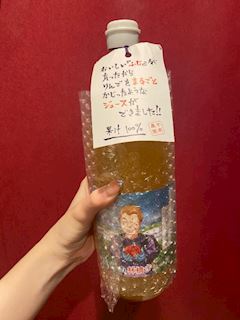 おいしい"ふじ"が
育ったから
りんごをまるごと
かじったような
ジュースが
できました!!
果汁100%